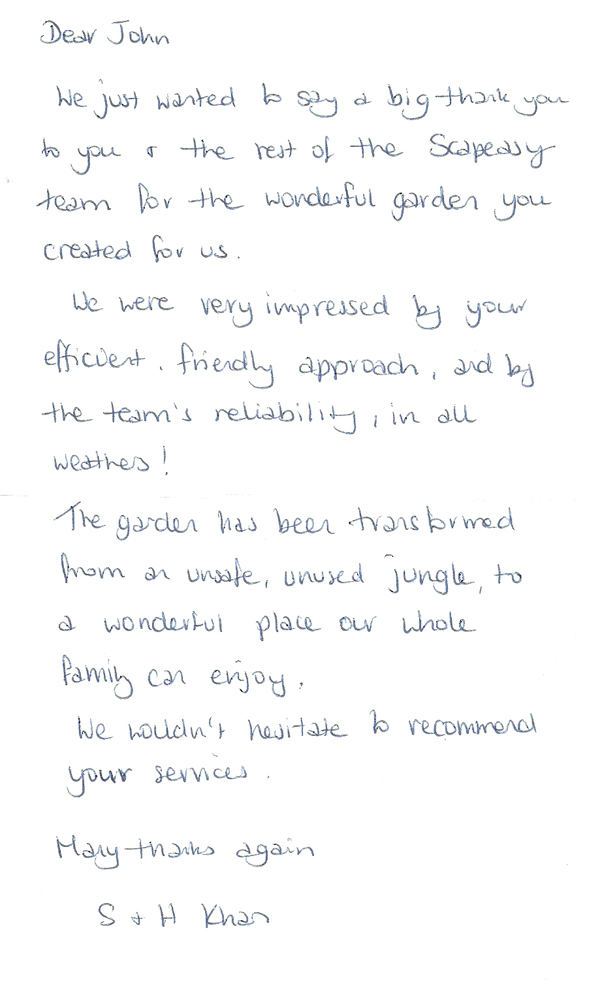 Dear John
We just wanted to say a big thank you
to you & the rest of the Scapeasy
team for the wonderful garden you
created for us.
We were very impressed by your
efficient, friendly approach, and by
the team's reliability, in all
weathers!
The garden has been transformed
from an unsafe, unused jungle, to
a wonderful place our whole
family can enjoy.
We wouldn't hesitate to recommend
your services.
Many thanks again
S + H Khan